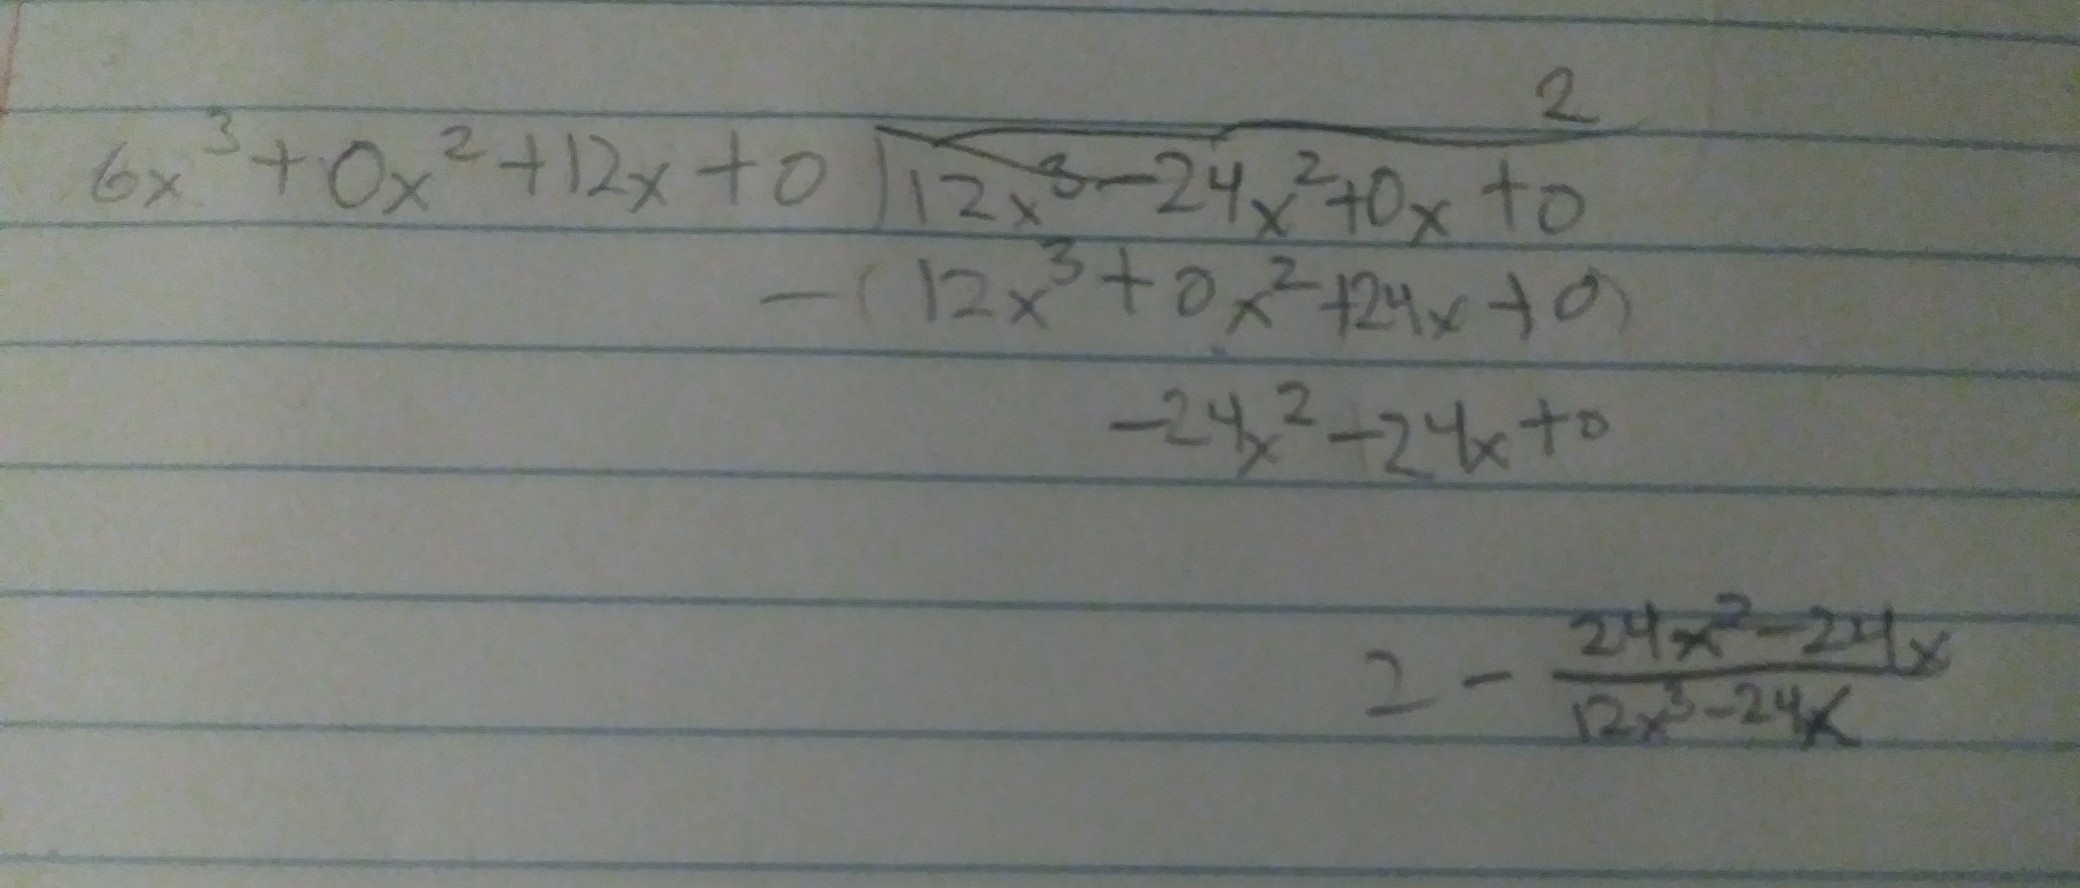 2
6x³+0x²+12x+0)12x³-24x²+0x+0
-(12x³+0x²+24x+0)
-24x²-24x+0
2 - \frac{24x²-24x}{12x³-24x}